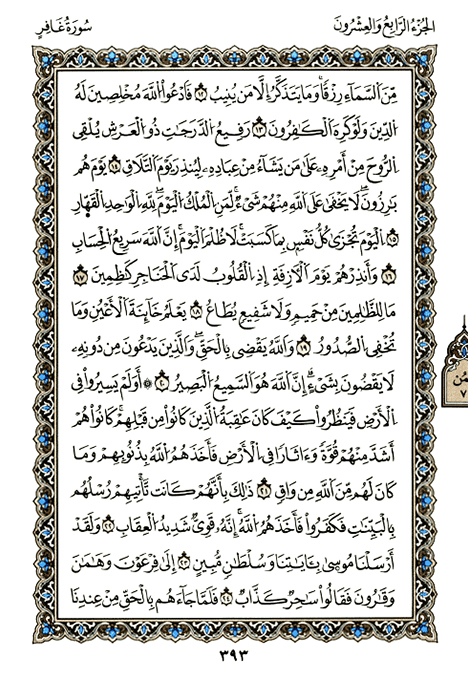 سُورَةُ غَافِرٍ الجُزْءُ الرَّابِعُ وَالعِشْرُونَ
مِّنَ اَ۬لسَّمَآءِ رِزْقاً وَمَا يَتَذَكَّرُ إِلَّا مَن يُنِيبُ ١٢ فَادْعُواْ اُ۬للَّهَ مُخْلِصِينَ لَهُ
اُ۬لدِّينَ وَلَوْ كَرِهَ اَ۬لْكَٰفِرُونَ ١٣ رَفِيعُ اُ۬لدَّرَجَٰتِ ذُو اُ۬لْعَرْشِ يُلْقِے
اِ۬لرُّوحَ مِنْ أَمْرِهِۦ عَلَىٰ مَن يَشَآءُ مِنْ عِبَادِهِۦ لِيُنذِرَ يَوْمَ اَ۬لتَّلَاقِ ١٤ يَوْمَ هُم
بَٰرِزُونَ لَا يَخْفَىٰ عَلَى اَ۬للَّهِ مِنْهُمْ شَےْءٌ لِّمَنِ اِ۬لْمُلْكُ اُ۬لْيَوْمَ لِلهِ اِ۬لْوَٰحِدِ اِ۬لْقَهَّارِ
١٥ اَ۬لْيَوْمَ تُجْزَىٰ كُلُّ نَفْسٍ بِمَا كَسَبَتْ لَا ظُلْمَ اَ۬لْيَوْمَ إِنَّ اَ۬للَّهَ سَرِيعُ اُ۬لْحِسَابِ
١٦ وَأَنذِرْهُمْ يَوْمَ اَ۬لْأٓزِفَةِ إِذِ اِ۬لْقُلُوبُ لَدَى اَ۬لْحَنَاجِرِ كَٰظِمِينَ ١٧
مَا لِلظَّٰلِمِينَ مِنْ حَمِيمٍ وَلَا شَفِيعٍ يُطَاعُ ١٨ يَعْلَمُ خَآئِنَةَ اَ۬لْأَعْيُنِ وَمَا
تُخْفِے اِ۬لصُّدُورُ ١٩ وَاللَّهُ يَقْضِے بِالْحَقِّ وَالَّذِينَ يَدْعُونَ مِن دُونِهِۦ
لَا يَقْضُونَ بِشَےْءٍ إِنَّ اَ۬للَّهَ هُوَ اَ۬لسَّمِيعُ اُ۬لْبَصِيرُ ٢٠ ۞ أَوَلَمْ يَسِيرُواْ فِے
اِ۬لْأَرْضِ فَيَنظُرُواْ كَيْفَ كَانَ عَٰقِبَةُ اُ۬لَّذِينَ كَانُواْ مِن قَبْلِهِمْ كَانُواْ هُمْ
أَشَدَّ مِنْهُمْ قُوَّةً وَءَاثَاراً فِے اِ۬لْأَرْضِ فَأَخَذَهُمُ اُ۬للَّهُ بِذُنُوبِهِمْ وَمَا
كَانَ لَهُم مِّنَ اَ۬للَّهِ مِن وَاقٍ ٢١ ذَٰلِكَ بِأَنَّهُمْ كَانَت تَّأْتِيهِمْ رُسُلُهُم
بِالْبَيِّنَٰتِ فَكَفَرُواْ فَأَخَذَهُمُ اُ۬للَّهُ إِنَّهُۥ قَوِيٌّ شَدِيدُ اُ۬لْعِقَابِ ٢٢ وَلَقَدْ
أَرْسَلْنَا مُوسَىٰ بِـَٔايَٰتِنَا وَسُلْطَٰنٍ مُّبِينٍ ٢٣ إِلَىٰ فِرْعَوْنَ وَهَٰمَٰنَ
وَقَٰرُونَ فَقَالُواْ سَٰحِرٌ كَذَّابٌ ٢٤ فَلَمَّا جَآءَهُم بِالْحَقِّ مِنْ عِندِنَا
٣٩٣